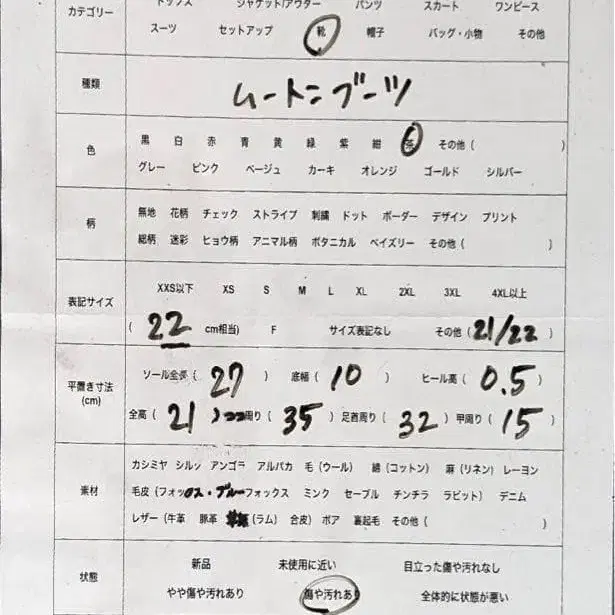 カテゴリー
トップス ジャケット/アウター パンツ スカート ワンピース
スーツ セットアップ 靴 帽子 バッグ・小物 その他
種類
ムートンブーツ
色
黒 白 赤 青 黄 緑 紫 紺 茶 その他 ( )
グレー ピンク ベージュ カーキ オレンジ ゴールド シルバー
柄
無地 花柄 チェック ストライプ 刺繍 ドット ボーダー デザイン プリント
総柄 迷彩 ヒョウ柄 アニマル柄 ボタニカル ペイズリー その他 ( )
表記サイズ
XXS以下 XS S M L XL 2XL 3XL 4XL以上
( 22 cm相当) F サイズ表記なし その他 (21/22)
平置き寸法
(cm)
ソール全長 ( 27 ) 底幅 ( 10 ) ヒール高 ( 0.5 )
全高 ( 21 ) 周り ( 35 ) 足首周り ( 32 ) 甲周り ( 15 )
素材
カシミヤ シルク アンゴラ アルパカ 毛 (ウール) 綿 (コットン) 麻 (リネン) レーヨン
毛皮 (フォックス・ブルーフォックス ミンク セーブル チンチラ ラビット) デニム
レザー (牛革 豚革 (ラム) 合皮) ボア 裏起毛 その他 ( )
状態
新品 未使用に近い 目立った傷や汚れなし
やや傷や汚れあり 傷や汚れあり 全体的に状態が悪い